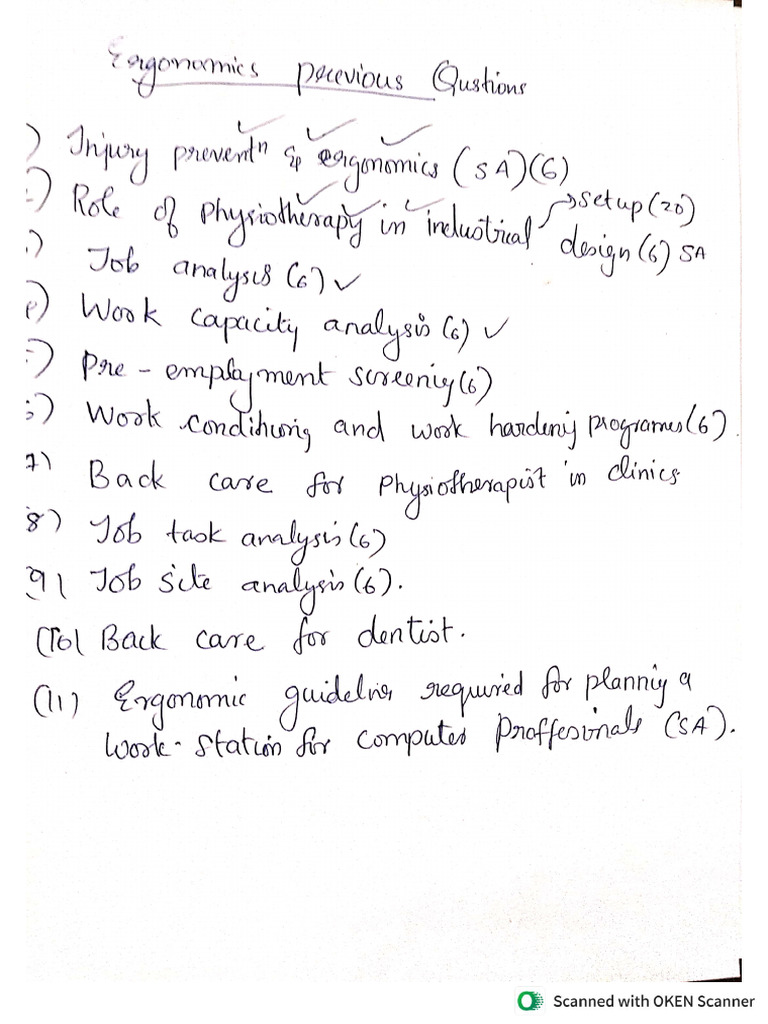 Ergonomics Previous Qustions
) Injury preventn & ergonomics (SA)(6)
) Role of Physiotherapy in industrical → setup (20)
design (6) SA
) Job analysis (6) ✓
) Work capacity analysis (6) ✓
) Pre-employment screening (6)
) Work conditiuring and work hardening programes (6).
7) Back care for Physiotherapist in clinics
8) Job task analysis (6)
9) Job site analysis (6).
(10) Back care for dentist.
(11) Ergonomic guidelines required for planning a
work-station for computer Proffesionals (SA).
Scanned with OKEN Scanner